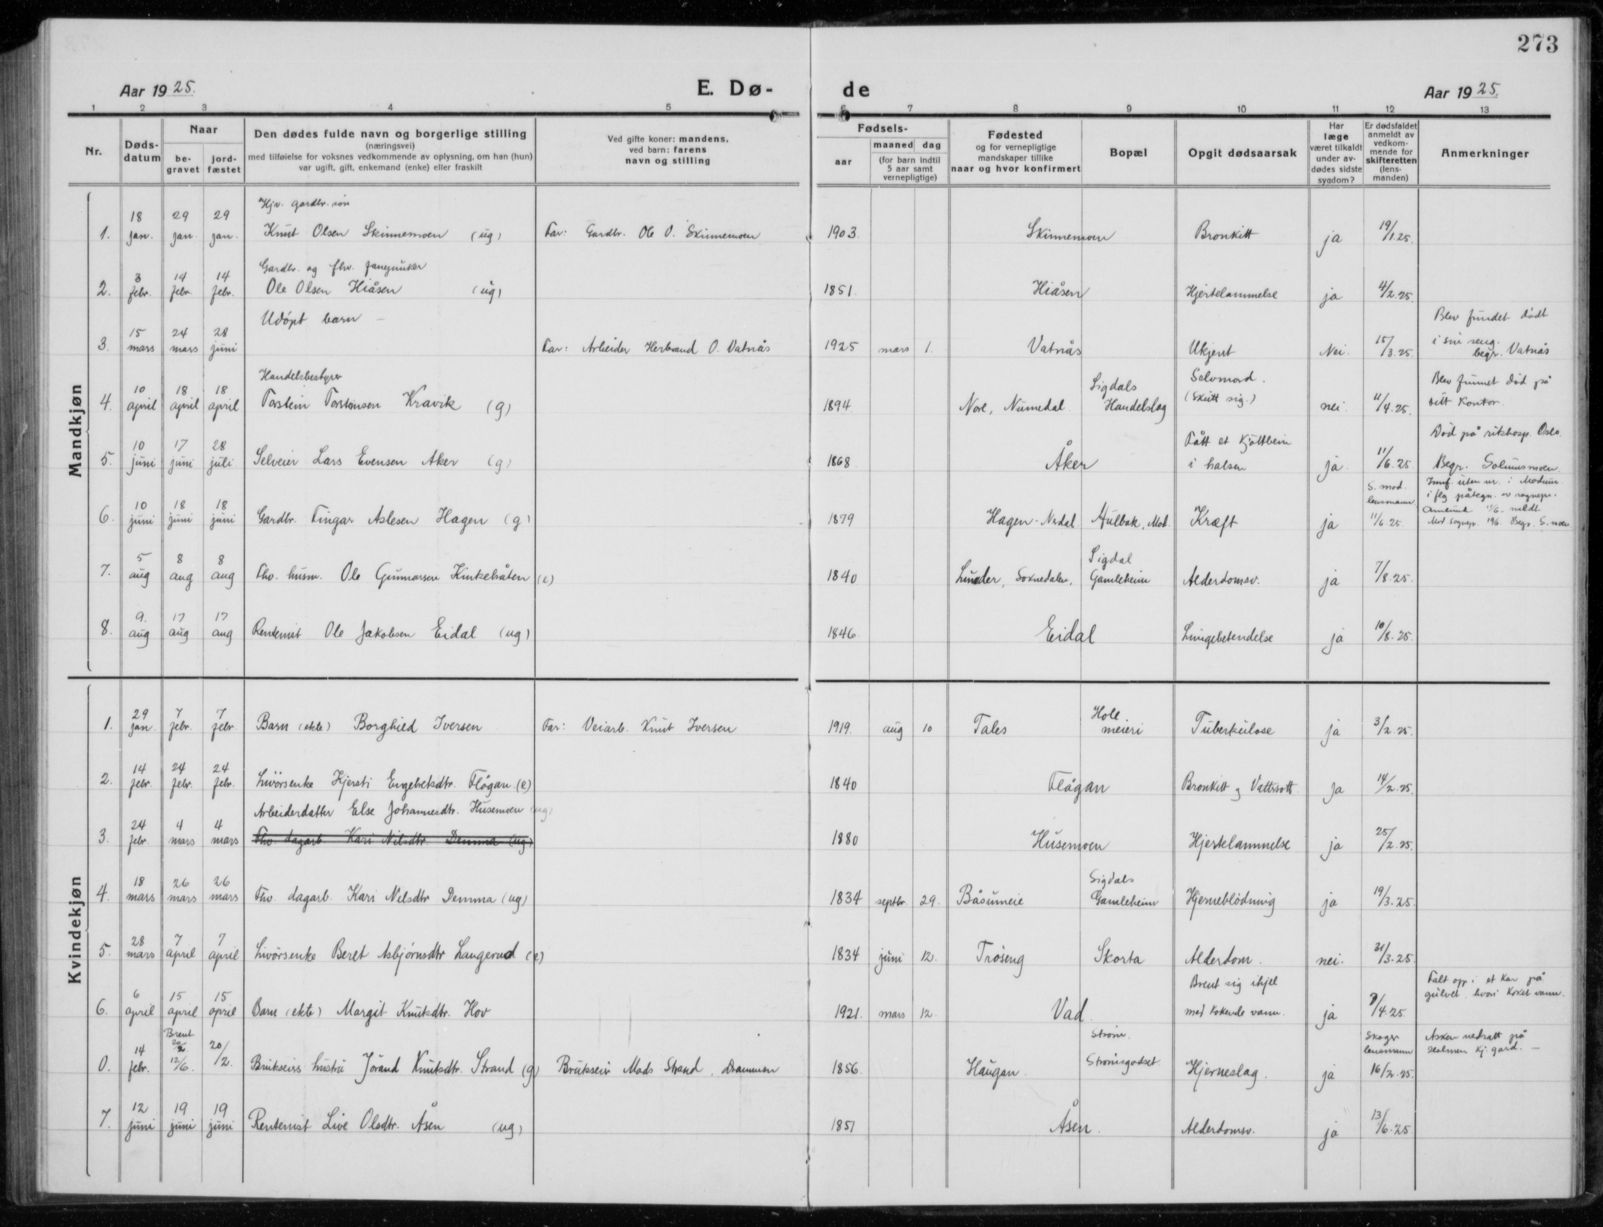 273
Aar 1925.
E. Dø-
de
Aar 1925.
1 2 3 4 5 6 7 8 9 10 11 12 13
Nr.
Døds-
datum
Naar
be-
gravet
jord-
fæstet
Den dødes fulde navn og borgerlige stilling
(næringsvei)
med tilføielse for voksnes vedkommende av oplysning, om han (hun)
var ugift, gift, enkemand (enke) eller fraskilt
Ved gifte koner: mandens,
ved barn: farens
navn og stilling
Fødsels-
aar
maaned dag
(for barn indtil
5 aar samt
vernepligtige)
Fødested
og for vernepligtige
mandskaper tillike
naar og hvor konfirmert
Bopæl
Opgit dødsaarsak
Har
læge
været tilkaldt
under av-
dødes sidste
sygdom?
Er dødsfaldet
anmeldt av
vedkom-
mende for
skifteretten
(lens-
manden)
Anmerkninger
Mandkjøn
Hjv. gardbr. søn
1. 18 jan. 29 jan. 29 jan. Knut Olsen Skinnemoen (ug) Far: Gardbr. Ole O. Skinnemoen 1903. Skinnemoen Bronkitt ja 19/1.25.
Gardbr. og fhv.
2. 3 febr. 14 febr. 14 febr. Ole Olsen Hiåsen (ug) 1851. Hiåsen Hjertelammelse ja 4/2.25.
Udöpt barn –
3. 15 mars 24 mars 28 juni Far: Arbeider Herbrand O. Vatnås 1925 mars 1. Vatnås Ukjent Nei. 15/3.25. Blev fundet dödt
i sin seng.
begr. Vatnås
Handelsbestyrer
4. 10 april 18 april 18 april Torstein Torstensen Kravik (g) 1894. Nore, Numedal. Sigdals Handelslag Selvmord. (Skutt sig.) nei. 11/4.25. Blev funnet död på
sitt kontor.
5. 10 juni 17 juni 28 juli Selveier Lars Evensen Aker (g) 1868 Åker Fått et kjöttbein i halsen ja 11/6.25 Död på rikshosp. Oslo.
Begr. Solumsmoen.
6. 10 juni 18 juni 18 juni Gardbr. Fingar Aslesen Hagen (g) 1879 Hagen - N.dal Aulbak, Mod. Kræft ja S. mod. lensmann 11/6.25.
7. 5 aug 8 aug 8 aug Fhv. husm. Ole Gunnarsen Kinkebråten (e) 1840 Lunder, Soknedalen. Sigdal Gamleheim Alderdomsv. ja 7/8.25.
8. 9. aug 17 aug 17 aug Rentenist Ole Jakobsen Eidal (ug) 1846. Eidal Lungebetendelse ja 10/8.25.
Kvindekjøn
1. 29 jan. 7 febr. 7 febr Barn (ekte) Borghild Iversen Far: Veiarb. Knut Iversen 1919. aug 10 Tales Hole meieri Tuberkulose ja 3/2.25.
2. 14 febr. 24 febr. 24 febr. Livörsenke Kjersti Engebretsdtr. Flågan (e) 1840 Flågan Bronkitt og Vattersott Ja 14/2.25.
Arbeiderdatter Else Johannesdtr. Husemoen (ug)
3. 24 febr. 4 mars 4 mars Fhv dagarb. Kari Nilsdtr. Demma (ug) 1880 Husemoen Hjertelammelse ja 25/2.25.
4. 18 mars 26 mars 26 mars Fhv. dagarb. Kari Nilsdtr Demma (ug) 1834 septbr. 29. Båsumeie Sigdals Gamleheim Hjerneblödning ja 19/3.25.
5. 28 mars 7 april 7 april Livörsenke Beret Asbjørnsdtr Langerud (e) 1834 juni 12. Tröseng Skorta Alderdom. nei. 31/3.25.
6. 6 april 15 april 15 april Barn (ekte) Margit Knutsdtr. Hov 1921. mars 12. Vad. Brent sig ihjel med kokende vann. ja 7/4.25 Falt opp i et kar på
gulvet, hvori koket vann.
0. 14 febr. Brent 20/2 12/6. 20/2. Brukseiers hustru Jörand Knutsdtr. Strand (g) Brukseier Mads Strand, Drammen 1856. Haugan. Ström. Strömsgodset Hjerneslag. ja Skoger lensmann 16/2.25. Asken nedsatt på
Holmen kj.gard. –
7. 12 juni 19 juni 19 juni Rentenist Live Olsdtr. Åsen (ug) 1851 Åsen. Alderdomsv. ja 13/6.25